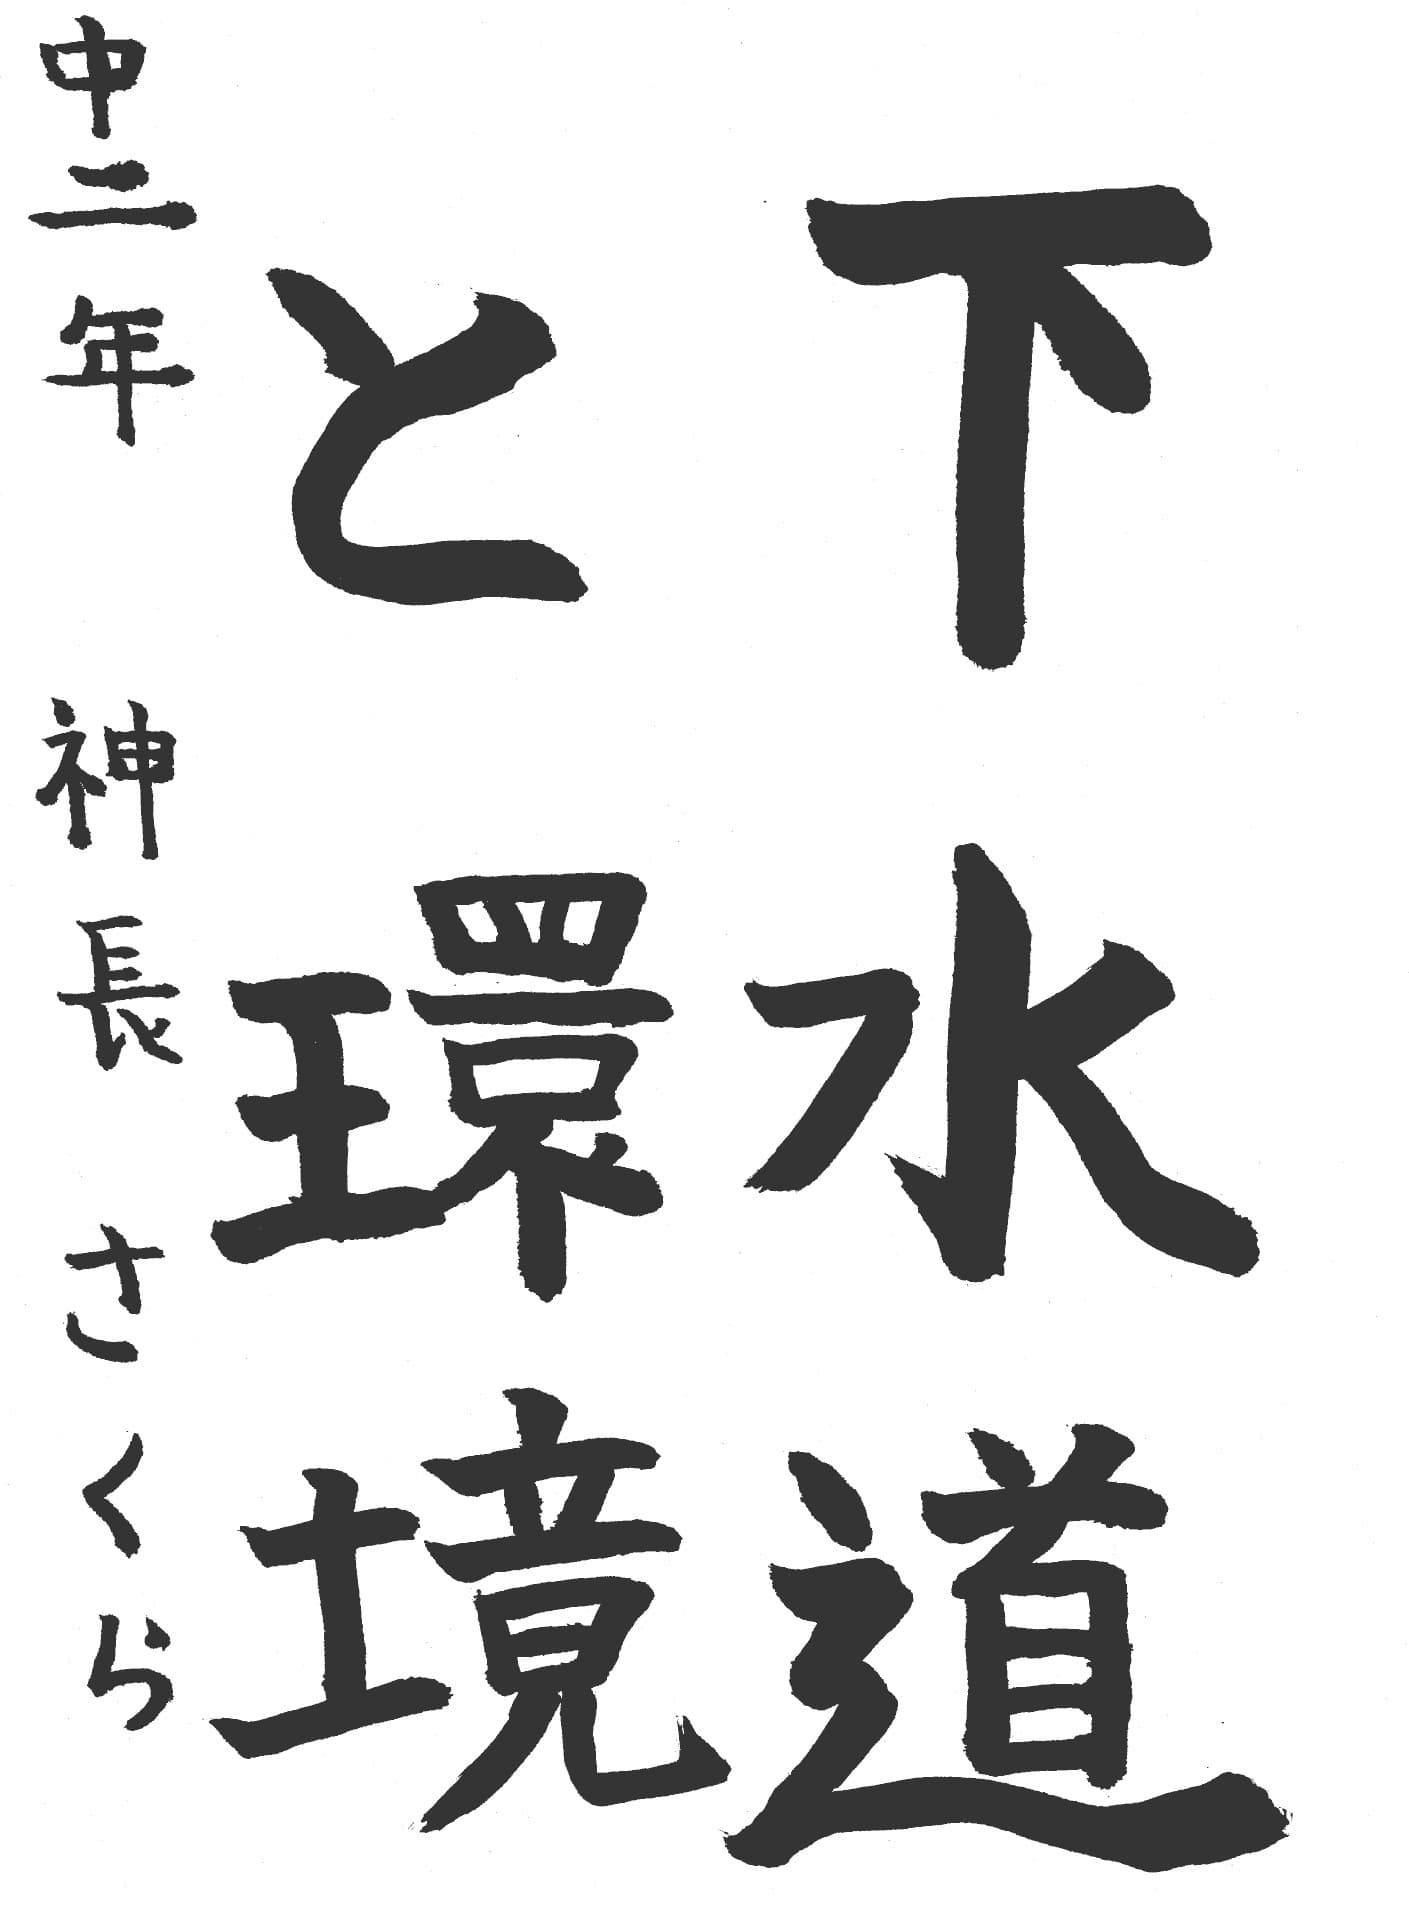 下水道
と環境
中二年 神長さくら